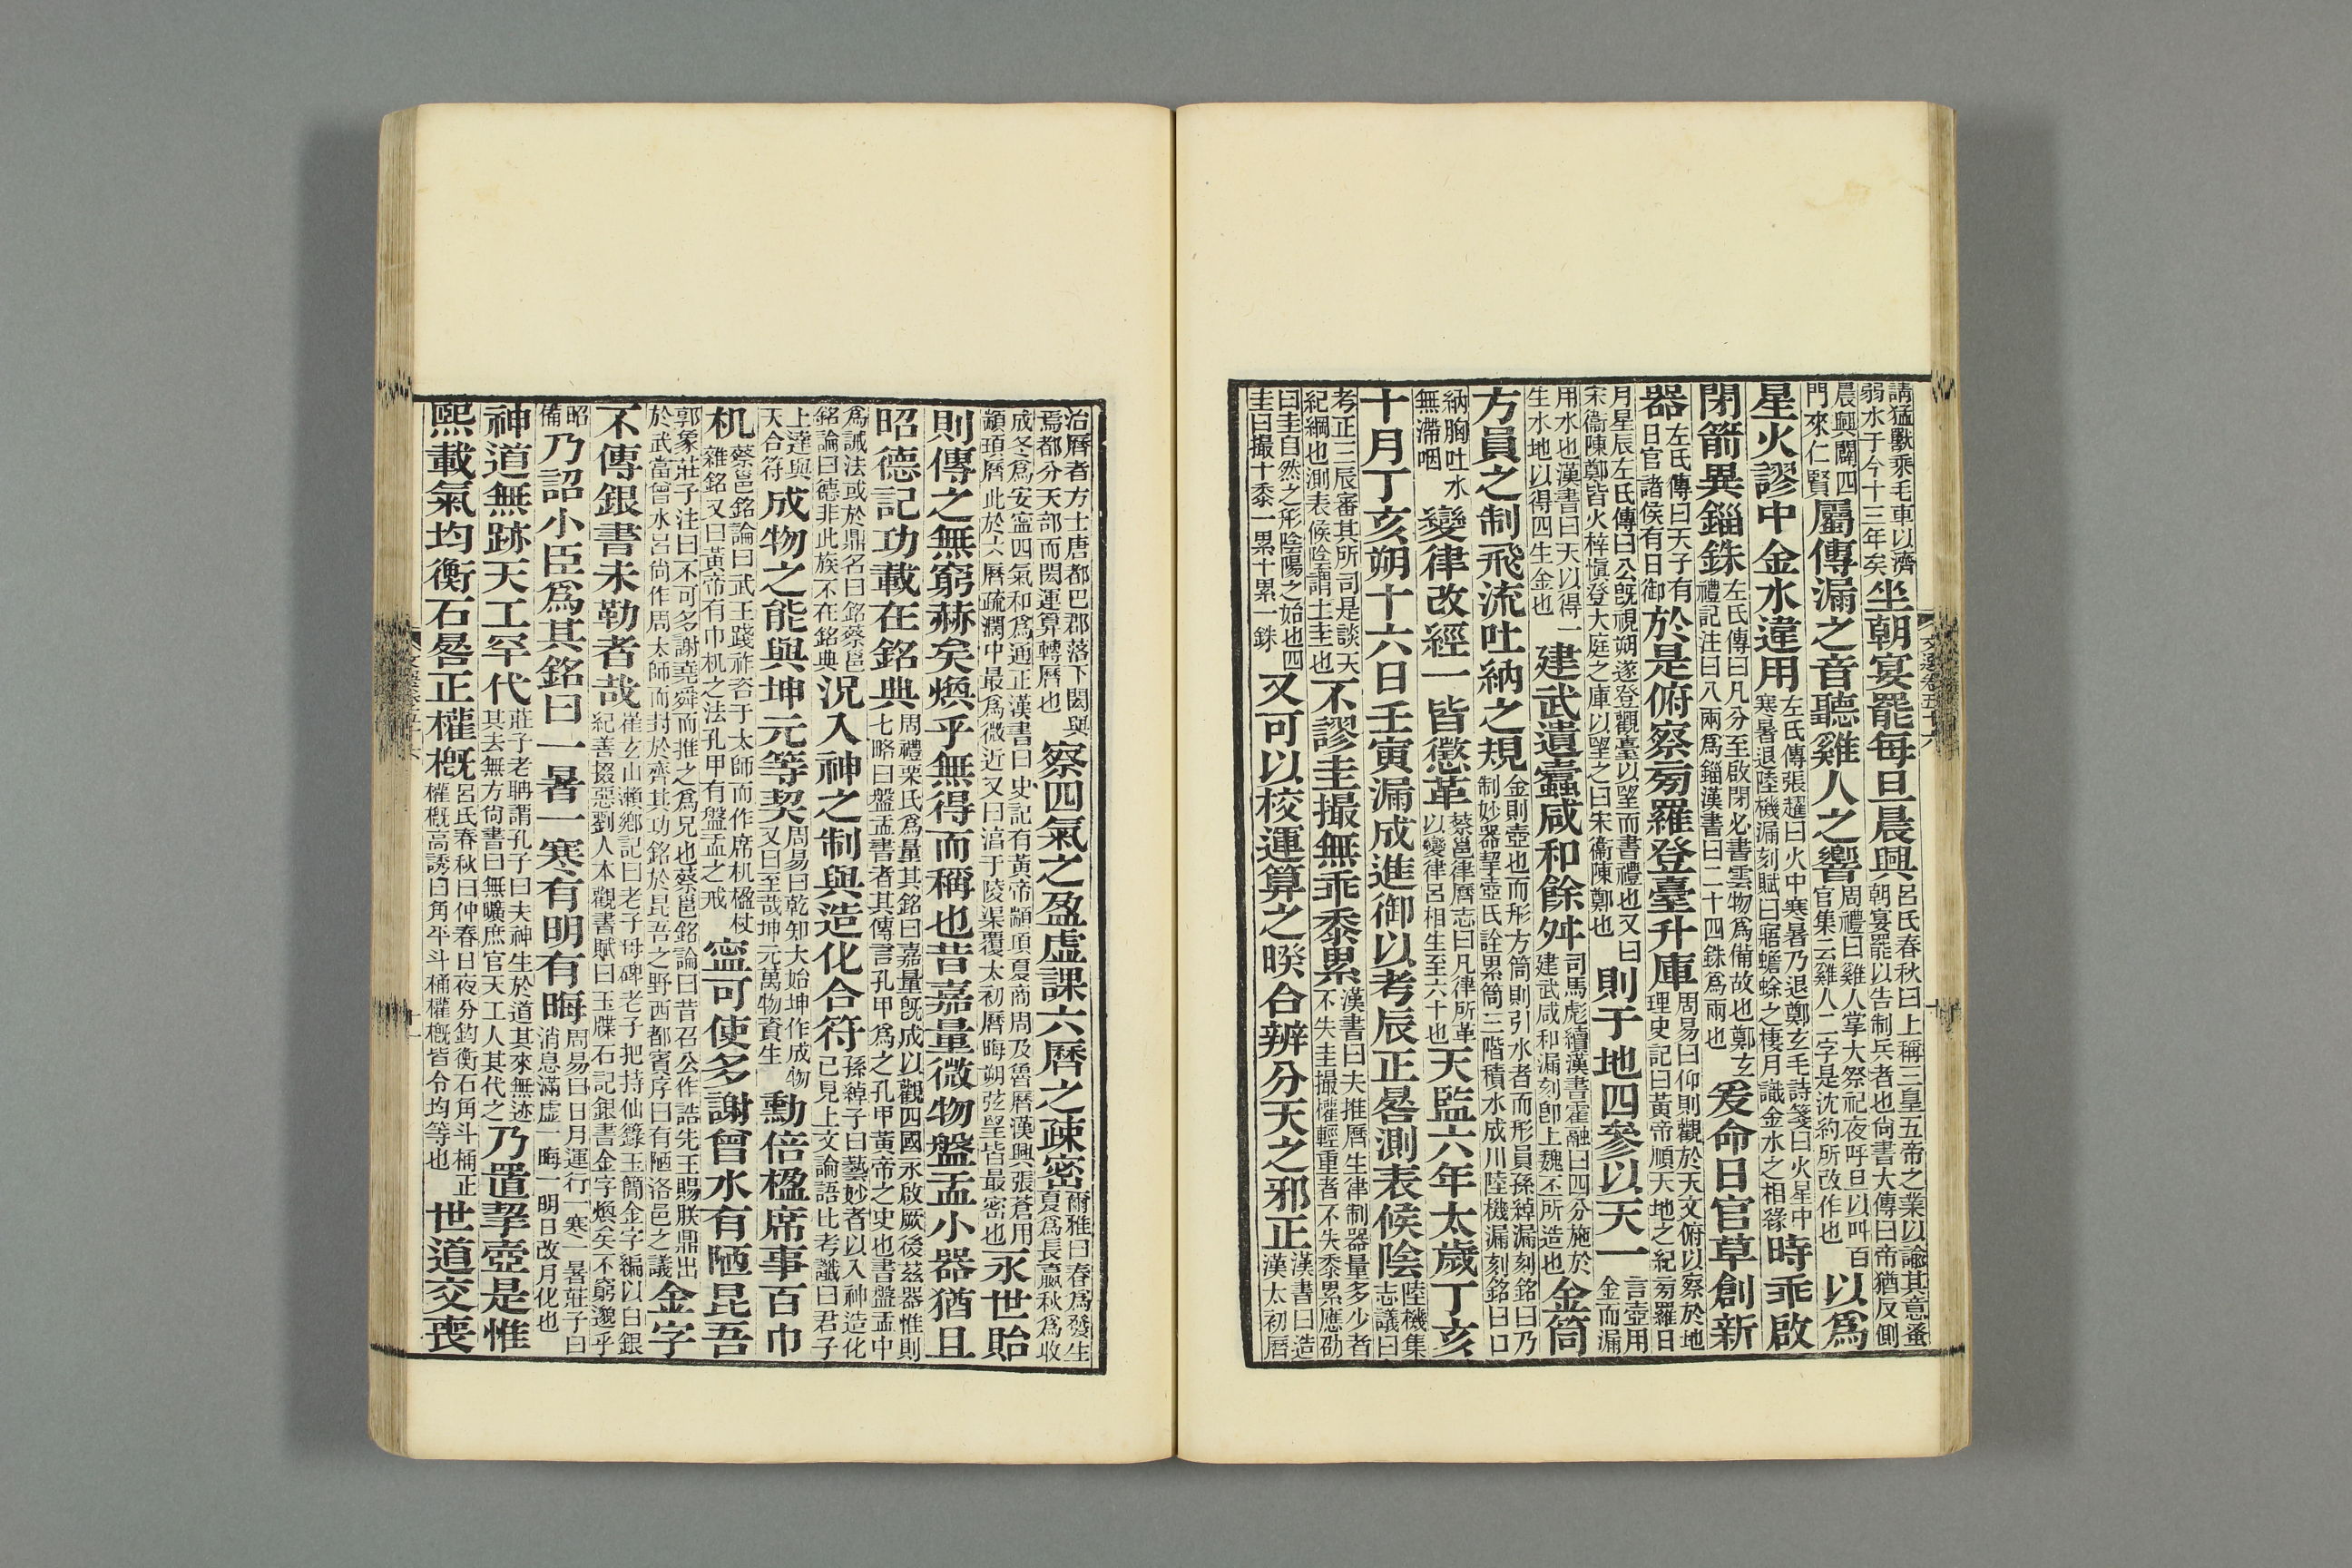 請猛獸乘毛車以濟弱水于今十三年矣坐朝宴罷每旦晨興呂氏春秋曰上稱三皇五帝之業以諭其意蚤朝宴罷以告制兵者也尚書大傳曰帝猶反側
晨興闢四門來仁賢屬傳漏之音聽雞人之響周禮曰雞人掌大祭祀夜呼旦以叫百官集云雞人二字是沈約所改作也以爲
星火謬中金水違用左氏傳張趯曰火中寒暑乃退鄭玄毛詩箋曰火星中寒暑退陸機漏刻賦曰寤蟾蜍之棲月識金水之相緣時乖啟
閉箭異錙銖左氏傳曰凡分至啟閉必書雲物爲備故也鄭玄禮記注曰八兩爲錙漢書曰二十四銖爲兩也爰命日官草創新
器左氏傳曰天子有日官諸侯有日御於是俯察旁羅登臺升庫周易曰仰則觀於天文俯以察於地理史記曰黃帝順天地之紀旁羅日
月星辰左氏傳曰公旣視朔遂登觀臺以望而書禮也又曰宋衞陳鄭皆火梓愼登大庭之庫以望之曰宋衞陳鄭也則于地四參以天一言壺用金而漏
用水也漢書曰天以得一生水地以得四生金也建武遺蠹咸和餘舛司馬彪續漢書霍融曰四分施於建武咸和漏刻卽上魏丕所造也金筒
方員之制飛流吐納之規金則壺也而形方筒則引水者而形員孫綽漏刻銘曰乃制妙器挈壺氏詮累筒三階積水成川陸機漏刻銘曰口
納胸吐水無滯咽變律改經一皆懲革蔡邕律曆志曰凡律所革以變律呂相生至六十也天監六年太歲丁亥
十月丁亥朔十六日壬寅漏成進御以考辰正晷測表候陰陸機集志議曰
考正三辰審其所司是談天紀綱也測表候陰謂土圭也不謬圭撮無乖黍累漢書曰夫推曆生律制器量多少者不失圭撮權輕重者不失黍累應劭
曰圭自然之形陰陽之始也四圭曰撮十黍一累十累一銖又可以校運算之暌合辨分天之邪正漢書曰造漢太初曆
治曆者方士唐都巴郡落下閎與焉都分天部而閎運算轉曆也察四氣之盈虛課六曆之疎密爾雅曰春爲發生夏爲長嬴秋爲收
成冬爲安寧四氣和爲通正漢書曰史記有黃帝顓頊夏商周及魯曆漢興張蒼用顓頊曆此於六曆疏濶中最爲微近又曰淯于陵渠覆太初曆晦朔弦望皆最密也永世貽
則傳之無窮赫矣煥乎無得而稱也昔嘉量微物盤盂小器猶且
昭德記功載在銘典周禮栗氏爲量其銘曰嘉量旣成以觀四國永啟厥後茲器惟則七略曰盤盂書者其傳言孔甲爲之孔甲黃帝之史也書盤盂中
爲誡法或於鼎名曰銘蔡邕銘論曰德非此族不在銘典況入神之制與造化合符孫綽子曰藝妙者以入神造化已見上文論語比考讖曰君子
上達與天合符成物之能與坤元等契周易曰乾知大始坤作成物又曰至哉坤元萬物資生勳倍楹席事百巾
机蔡邕銘論曰武王踐祚咨于太師而作席机楹杖雜銘又曰黃帝有巾机之法孔甲有盤盂之戒寧可使多謝曾水有陋昆吾
郭象莊子注曰不可多謝堯舜而推之爲兄也蔡邕銘論曰昔召公作誥先王賜朕鼎出於武當曾水呂尚作周太師而封於齊其功銘於昆吾之野西都賓序曰有陋洛邑之議金字
不傳銀書未勒者哉崔玄山瀨鄉記曰老子母碑老子把持仙籙玉簡金字編以白銀紀善掇惡劉人本觀書賦曰玉牒石記銀書金字煥矣不窮邈乎
昭備乃詔小臣爲其銘曰一暑一寒有明有晦周易曰日月運行一寒一暑莊子曰消息滿虛一晦一明日改月化也
神道無跡天工罕代莊子老聃謂孔子曰夫神生於道其來無迹其去無方尙書曰無曠庶官天工人其代之乃置挈壺是惟
熙載氣均衡石晷正權槪呂氏春秋曰仲春日夜分鈞衡石角斗桶正權槪高誘曰角平斗桶權槪皆令均等也世道交喪